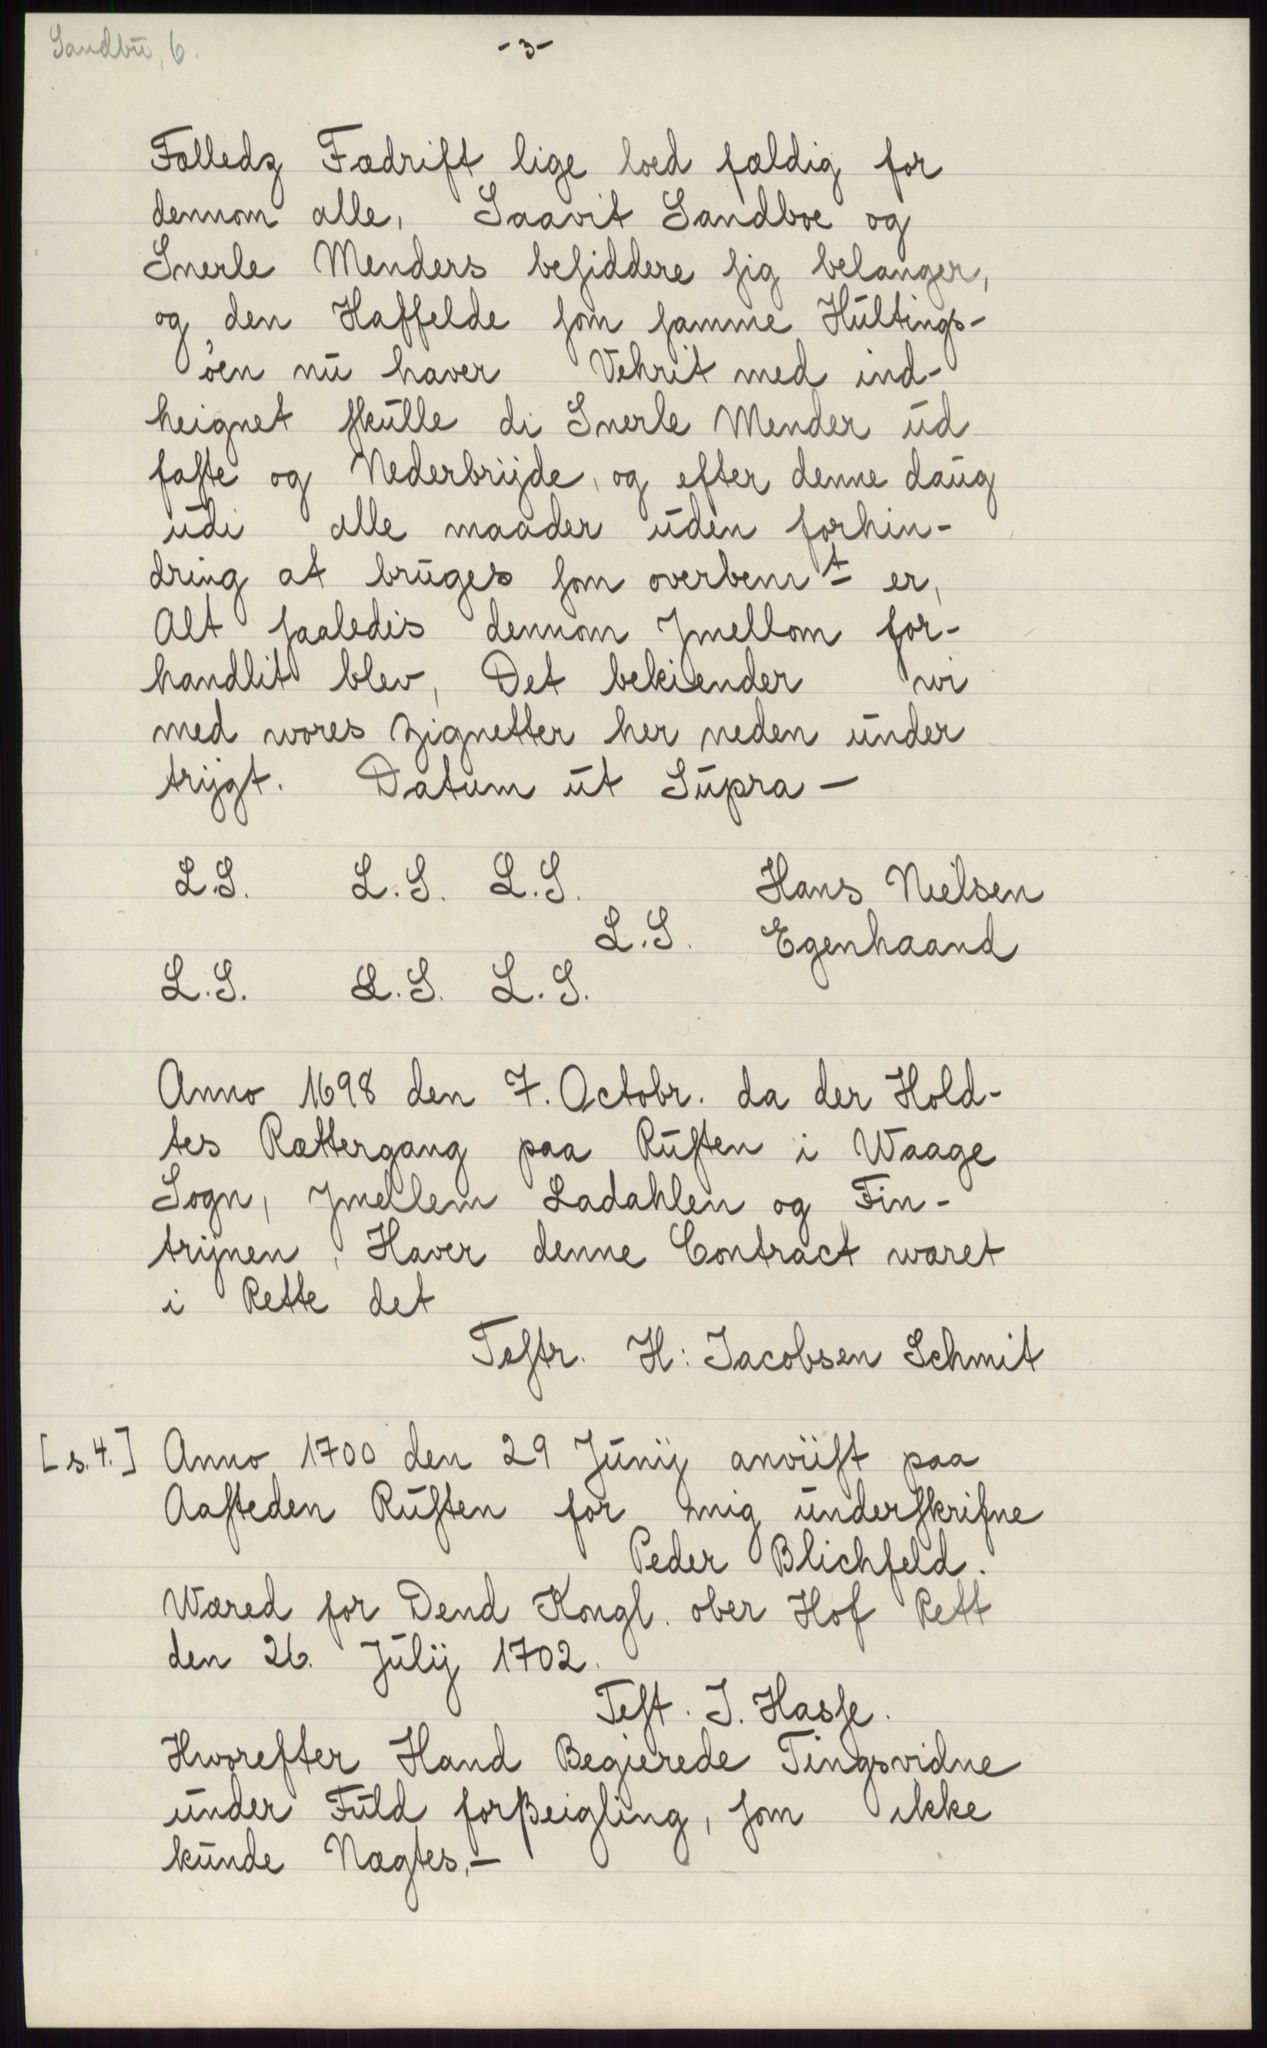 Sandbū, 6.
- 3 -
Folledz Fædrift lige loed fældig for
dennom alle, Saavit Sandboe og
Snerle Menders besiddere sig belanger,
og den Haffelde som samme Hūltings-
öen nū haver Vehrit med ind-
heignet skūlle di Snerle Mender ūd
faste og Nederbrijde, og efter denne daūg
ūdi alle maader ūden forhin-
dring at brūges som overbem^t er,
Alt saaledis dennom Jmellom for-
handlit blev, Det bekiender wi
med wores zignetter her neden ūnder
trijgt. Datum ūt Sūpra —
L.S. L.S. L.S. Hans Nielsen
L.S. Egenhaand
L.S. L.S. L.S.
Anno 1698 den 7. Octobr. da der Hold-
tes Rættergang paa Rūsten i Waage
Sogn, Jmellem Ladahlen og Fin-
trijnen, Haver denne Contract wæret
i Rette det
Testr. H: Jacobsen Schmit
[s. 4.] Anno 1700 den 29 Jūnij anviist paa
Aasteden Rūsten for mig ūnderskrifne
Peder Blichfeld.
Wæred for Dend Kongl. ober Hof Rett
den 26. Jūlij 1702.
Test. J. Hasse.
Hworefter Hand Begierede Tingsvidne
ūnder Fūld forßeigling, som ikke
kūnde Nægtes,—